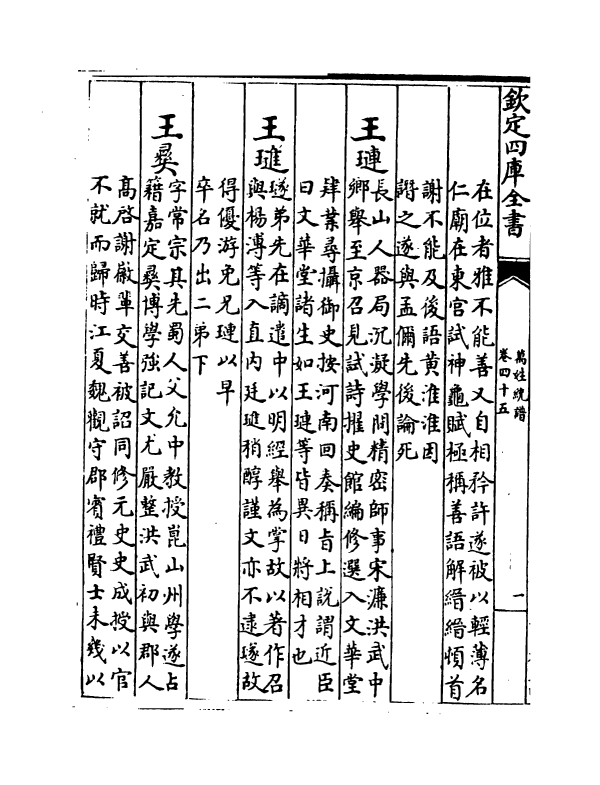 欽定四庫全書
萬姓統譜
卷四十五
一
在位者雅不能善又自相矜許遂被以輕薄名
仁廟在東宮試神龜賦極稱善語解縉縉煩首
謝不能及後語黄淮淮因
譛之遂與孟倆先後論死
王璉
長山人器局沉凝學問精密師事宋濂洪武中
鄉舉至京召見試詩擢史館編修選入文華堂
肄業尋攝御史按河南回奏稱旨上説謂近臣
曰文華堂諸生如王璉等皆異日將相才也
王璡
璲弟先在謫遣中以明經舉為掌故以著作召
與楊溥等入直内廷璡稍醇謹文亦不逮璲故
得優游免兄璉以早
卒名乃出二弟下
王彛
字常宗其先蜀人父允中教授崑山州學遂占
籍嘉定彛博學強記文尤嚴整洪武初與郡人
高啓謝徽軰交善被詔同修元史史成授以官
不就而歸時江夏魏觀守郡賓禮賢士未幾以